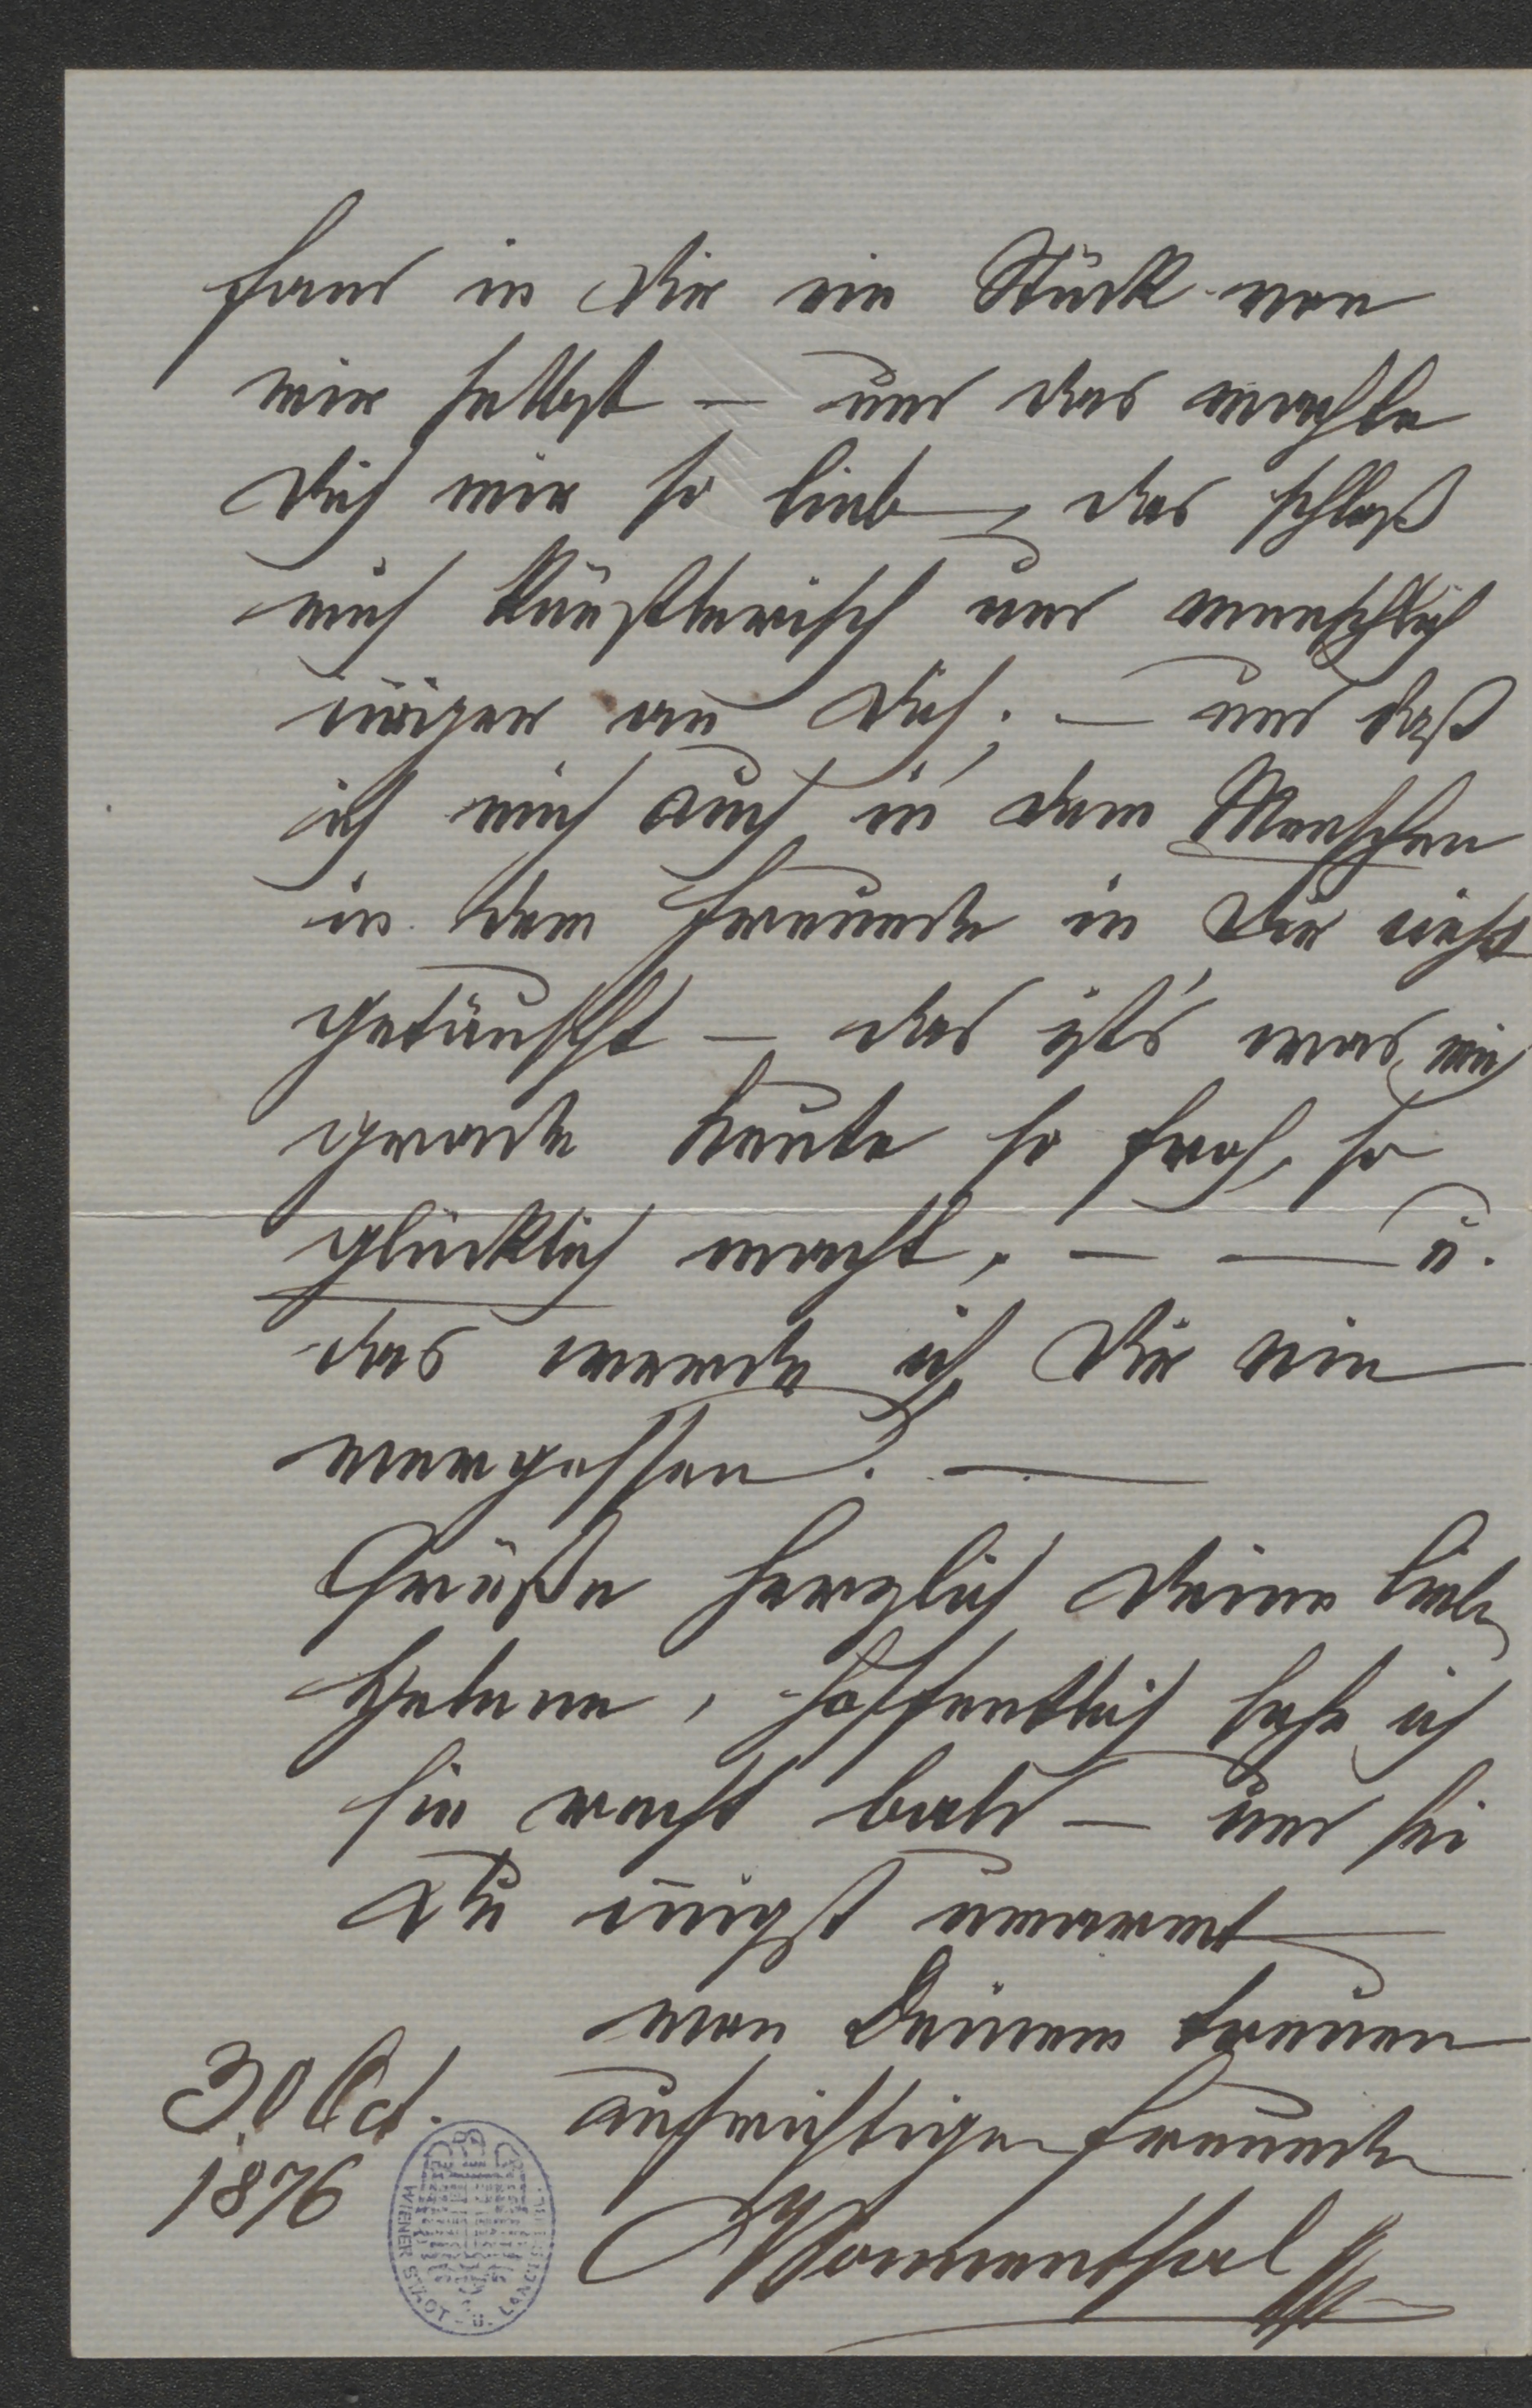 fand in Dir ein Stück von
mir selbst – und das machte
Dich mir so lieb, das schloß
mich künstlerisch und menschlich
inniger an Dich; – und daß
ich mich auch in dem Menschen
in dem Freunde in Dir nicht
getäuscht – das ist's was mich
gerade heute so froh, so
glücklich macht, – – u.
das werde ich Dir nie
vergessen! –
Grüße herzlich Deine liebe
Helene, hoffentlich sehe ich
sie recht bald – und sei
Du innigst umarmt
von Deinem treuen
aufrichtigen Freunde
Sonnenthal
30 Oct.
1876
WIENER STADT- U. LANDES